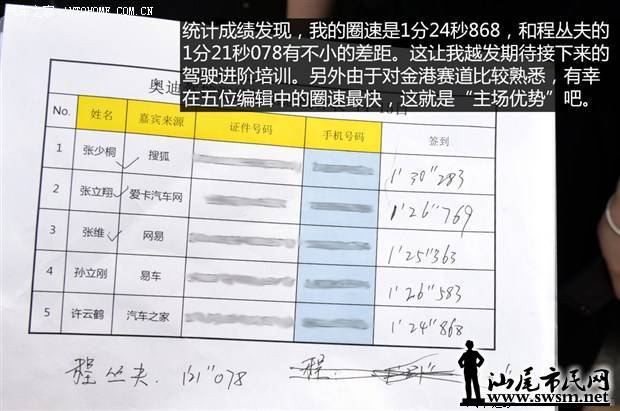 统计成绩发现，我的圈速是1分24秒868，和程丛夫的
1分21秒078有不小的差距。这让我越发期待接下来的
驾驶进阶培训。另外由于对金港赛道比较熟悉，有幸
在五位编辑中的圈速最快，这就是“主场优势”吧。
奥迪
No. 姓名 嘉宾来源 证件号码 手机号码 签到
1 张少桐 搜狐 1'30"283
2 张立翔 爱卡汽车网 1'26"769
3 张维 网易 1'25"363
4 孙立刚 易车 1'26"583
5 许云鹤 汽车之家 1'24"868
程丛夫. 1'21"078 程.
汕尾市民网
www.swsm.net